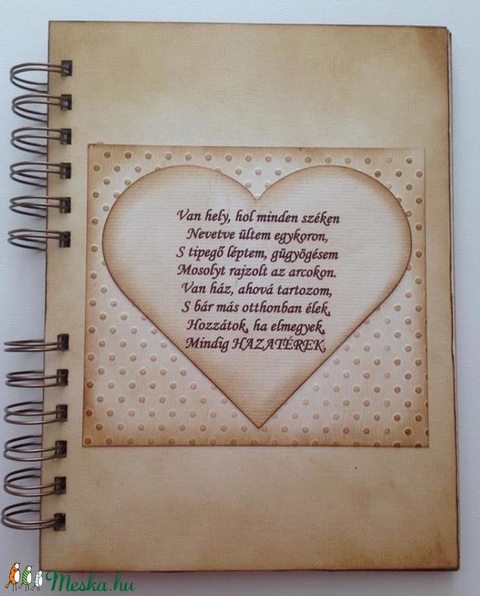 Van hely, hol minden széken
Nevetve ültem egykoron,
S tipegő léptem, gügyögésem
Mosolyt rajzolt az arcokon.
Van ház, ahová tartozom,
S bár más otthonban élek,
Hozzátok, ha elmegyek,
Mindig HAZATÉREK.
Meska.hu